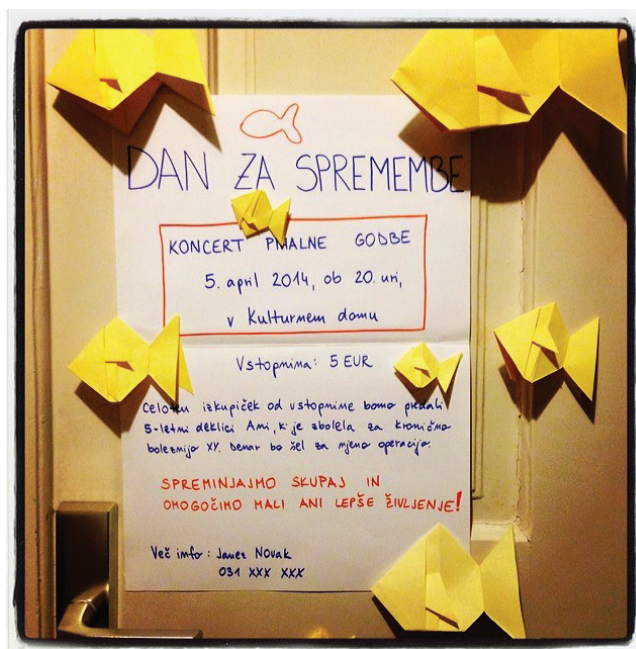 DAN ZA SPREMEMBE
KONCERT PIHALNE GODBE
5. april 2014, ob 20. uri,
v Kulturnem domu
Vstopnina: 5 EUR
Celotni izkupiček od vstopnine bomo predali
5-letni deklici Ani, ki je zbolela za kronično
boleznijo XY. Denar bo šel za njeno operacijo.
SPREMINJAJMO SKUPAJ IN
OMOGOČIMO MALI ANI LEPŠE ŽIVLJENJE!
Več info: Janez Novak
031 XXX XXX